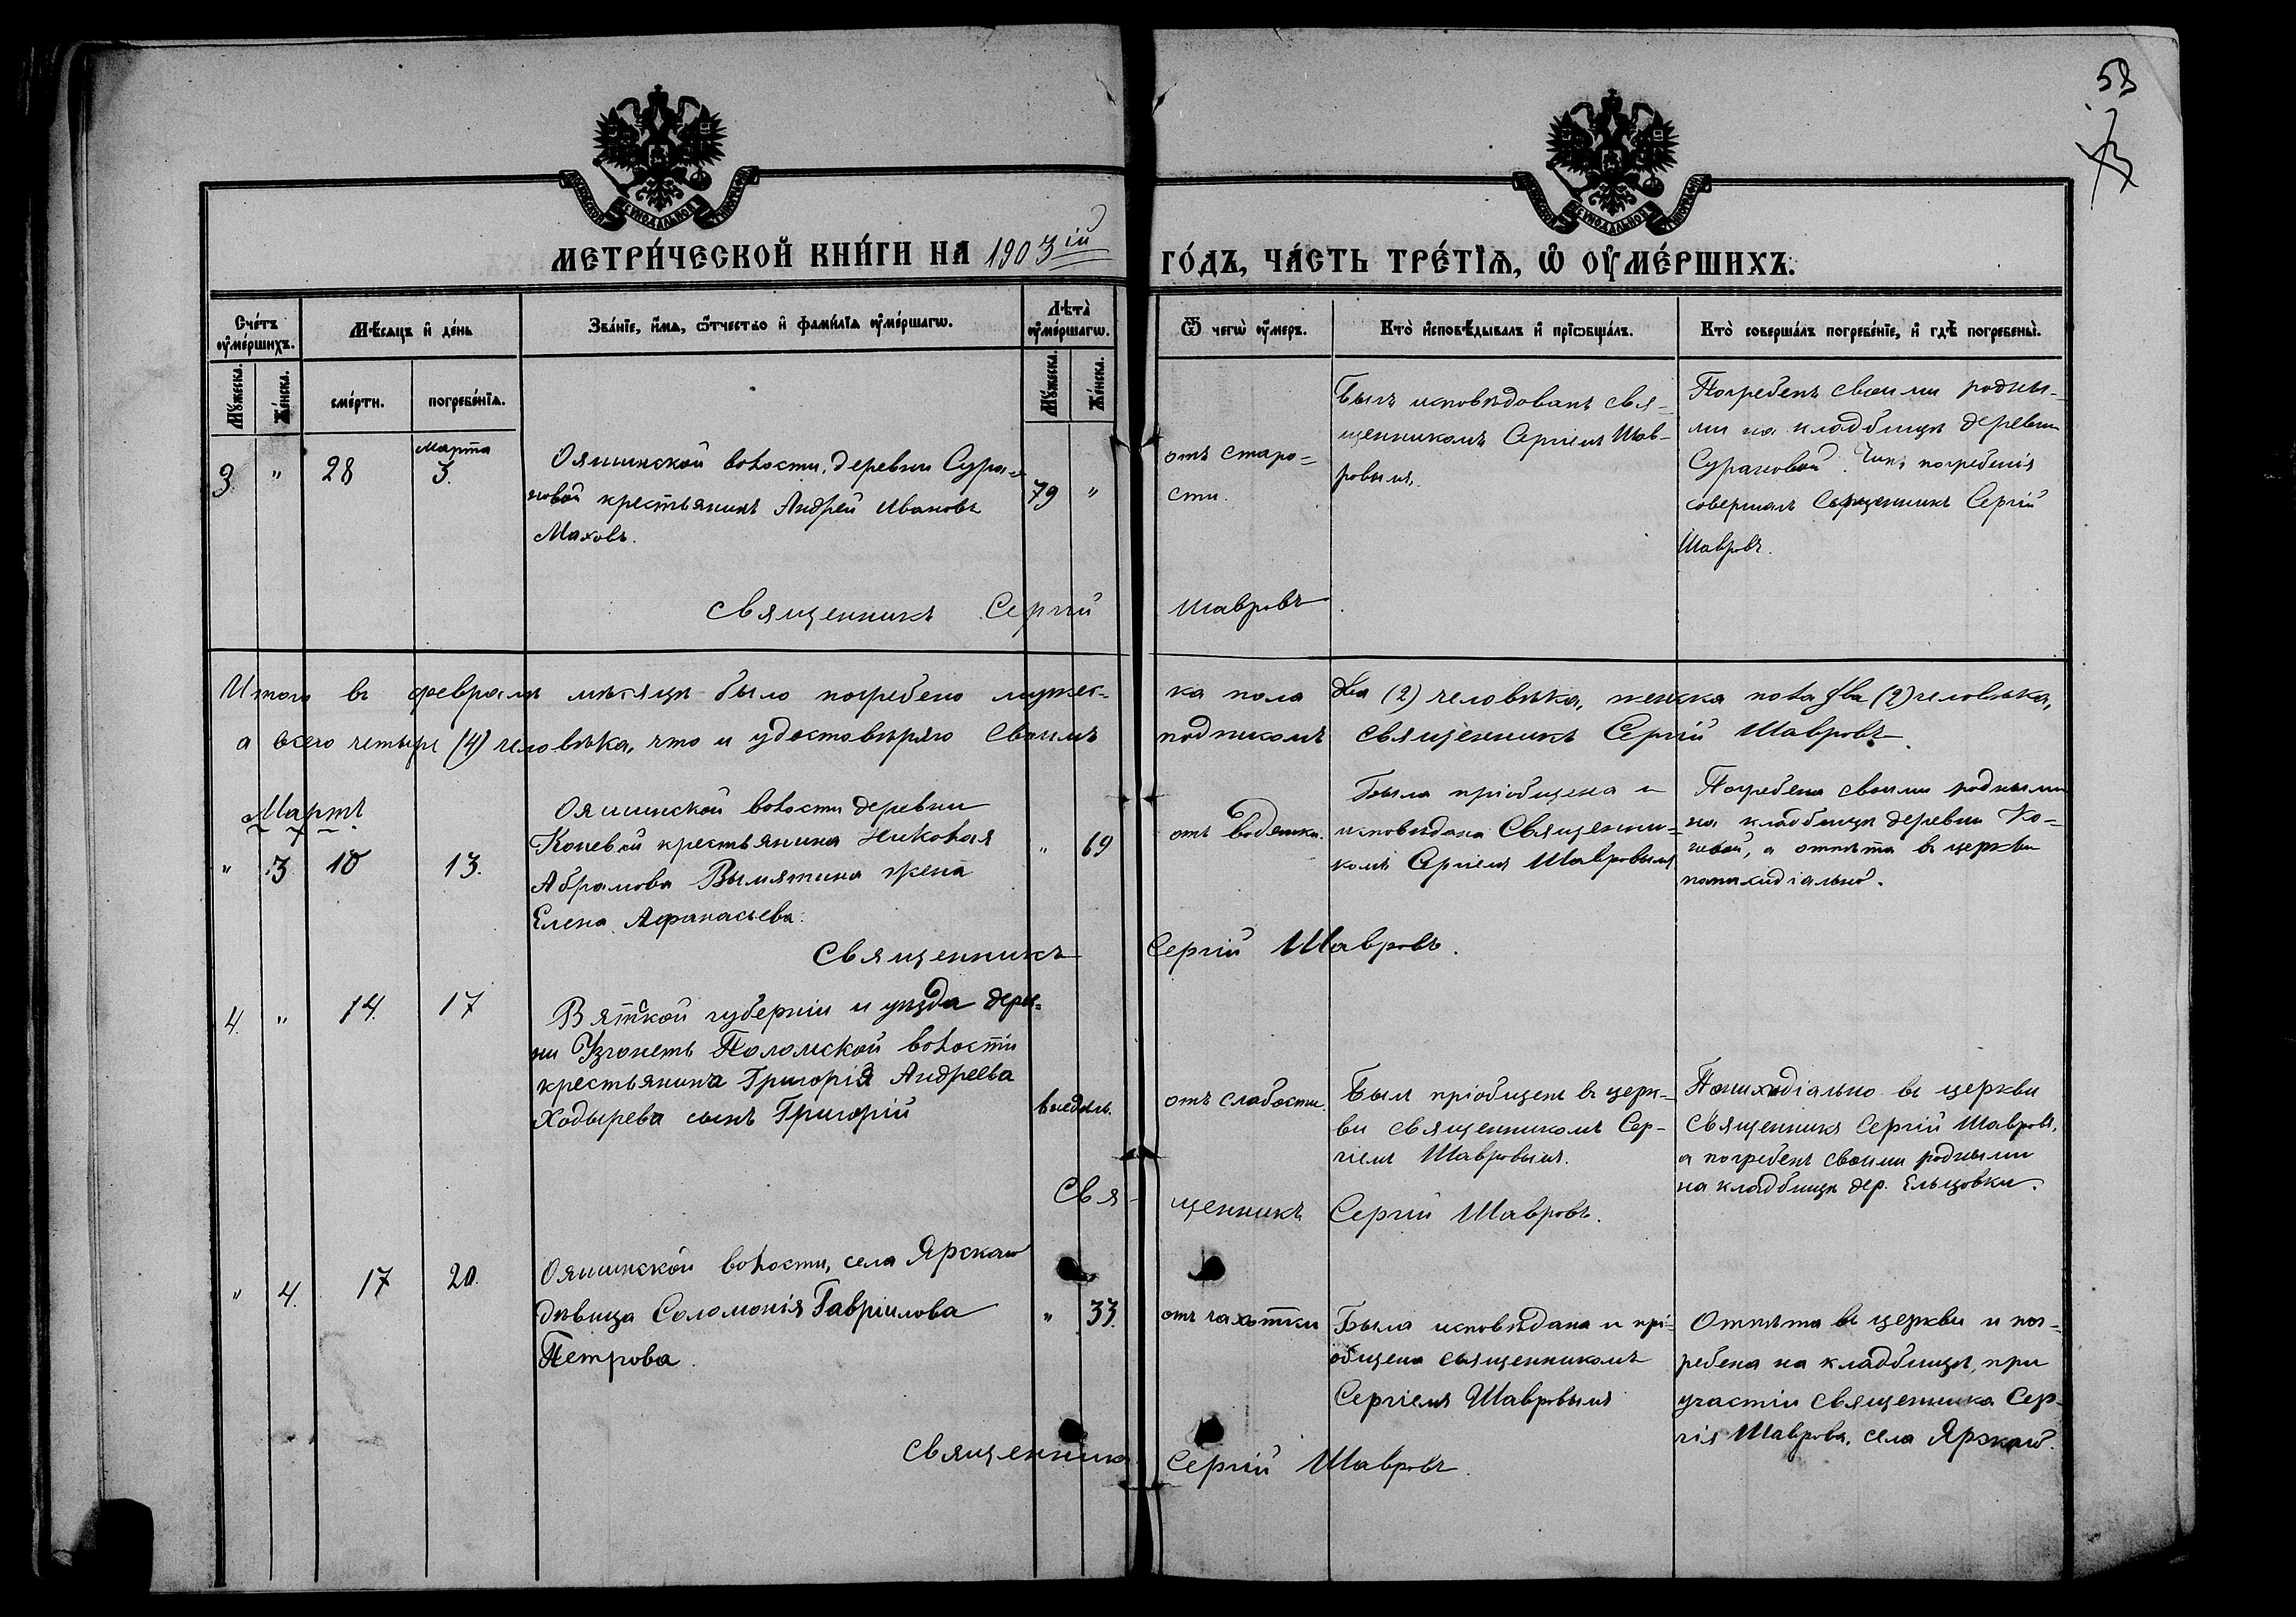 58
МОСКОВСКОЙ СѴНОДАЛЬНОЙ ТИПОГРАФІИ
МОСКОВСКОЙ СѴНОДАЛЬНОЙ ТИПОГРАФІИ
МЕТРИ́ЧЕСКОЙ КНИ́ГИ НА 1903ій ГО́ДЪ, ЧА́СТЬ ТРЕ́ТІѦ, Ѡ҆ ОУ҆МЕ́РШИХЪ.
Сче́тъ оу҆ме́ршихъ.
Мѣ́сѧцъ и҆ де́нь
Зва́нїе, и҆́мѧ, ѻ҆́тчество и҆ фами́лїѧ оу҆ме́ршагѡ.
Лѣ́та̀ оу҆ме́ршагѡ.
Ѿ чегѡ̀ оу҆́меръ.
Кто̀ и҆сповѣ́дывалъ и҆ прїѡбща́лъ.
Кто̀ соверша́лъ погребе́нїе, и҆ гдѣ̀ погребены̀.
Мꙋ́жеска. Же́нска. сме́рти. погребе́нїѧ. Мꙋ́жеска. Же́нска.
3. " 28 Марта 3.
Ояшинской волости, деревни Сура=
новой крестьянинъ Андрей Ивановъ
Маховъ.
79 "
отъ старо=
сти.
Былъ исповѣдованъ свя-
щенникомъ Сергіемъ Шав-
ровымъ.
Погребенъ своими родны-
ми на кладбищѣ деревни
Сурановой. Чинъ погребенія
совершалъ Священникъ Сергій
Шавровъ.
Священникъ Сергій Шавровъ
Итого въ февралѣ мѣсяцѣ было погребено мужес-ка пола два (2) человѣка, женска пола два (2) человѣка,
а всего четыре (4) человѣка, что и удостовѣряю своимъ подписомъ священникъ Сергій Шавровъ.
Мартъ
" 3 10 13.
Ояшинской волости деревни
Коневой крестьянина Николая
Абрамова Вымятина жена
Елена Афанасьева.
" 69
отъ водянки.
Была пріобщена и
исповѣдана Священни=
комъ Сергіемъ Шавровымъ
Погребена своими родными
на кладбищѣ деревни Ко=
невой, а отпѣта въ церкви
панихидіально.
Священникъ Сергій Шавровъ.
4. " 14. 17
Вятской губерніи и уѣзда дерев=
ни Поломской волости
крестьянина Григорія Андреева
Ходырева сынъ Григорій
недѣль.
отъ слабости.
Былъ пріобщенъ въ церк-
ви священникомъ Сер-
гіемъ Шавровымъ.
Панихидіально въ церкви
Священникъ Сергій Шавровъ,
а погребенъ своими родными
на кладбищѣ дер. Ельцовки.
Свя-щенникъ Сергій Шавровъ.
" 4. 17 20.
Ояшинской волости, села Ярскаго
дѣвица Соломонія Гавріилова
Петрова.
" 33.
отъ чахотки
Была исповѣдана и прі-
общена священникомъ
Сергіемъ Шавровымъ
Отпѣта въ церкви и пог-
ребена на кладбищѣ, при
участіи священника Сер-
гія Шаврова, села Ярскаго.
Священникъ Сергій Шавровъ.